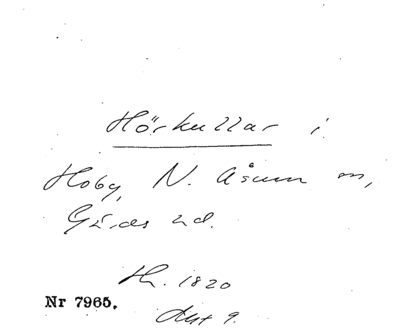 Hörkullar i
Hoby, N. Åsum sn,
Gärds hd.
Th. 1820
Nr 7965.
Akt 9.